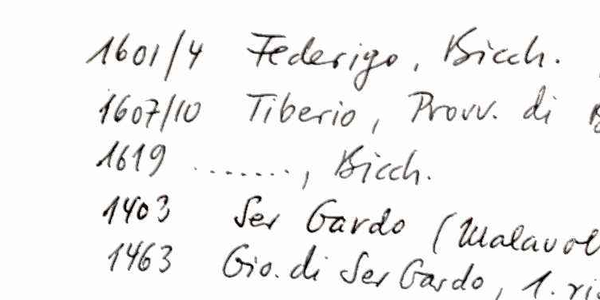 1601/4 Federigo, Bicch.
1607/10 Tiberio, Provv. di B
1619 ........, Bicch.
1403 Ser Gardo (Malavol
1463 Gio. di Ser Gardo, 1. ris